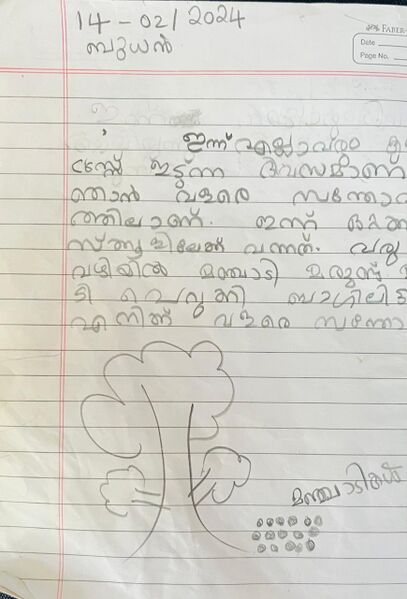 14-02/2024
ബുധൻ
FABER-
Date
Page No.
ഇന്ന് എല്ലാവരും
ഡ്രസ്സ് ഇടുന്ന ദിവസമാണ്
ഞാൻ വളരെ സന്തോ
ത്തിലാണ്. ഇന്ന്
സ്കൂളിലേക്ക് വന്നത്. വരു
വഴിയിൽ മഞ്ചാടി മരമുണ്ട്
ടി പെറുക്കി ബാഗിലിട്ട
എനിക്ക് വളരെ സന്തോ
മഞ്ചാടികൾ